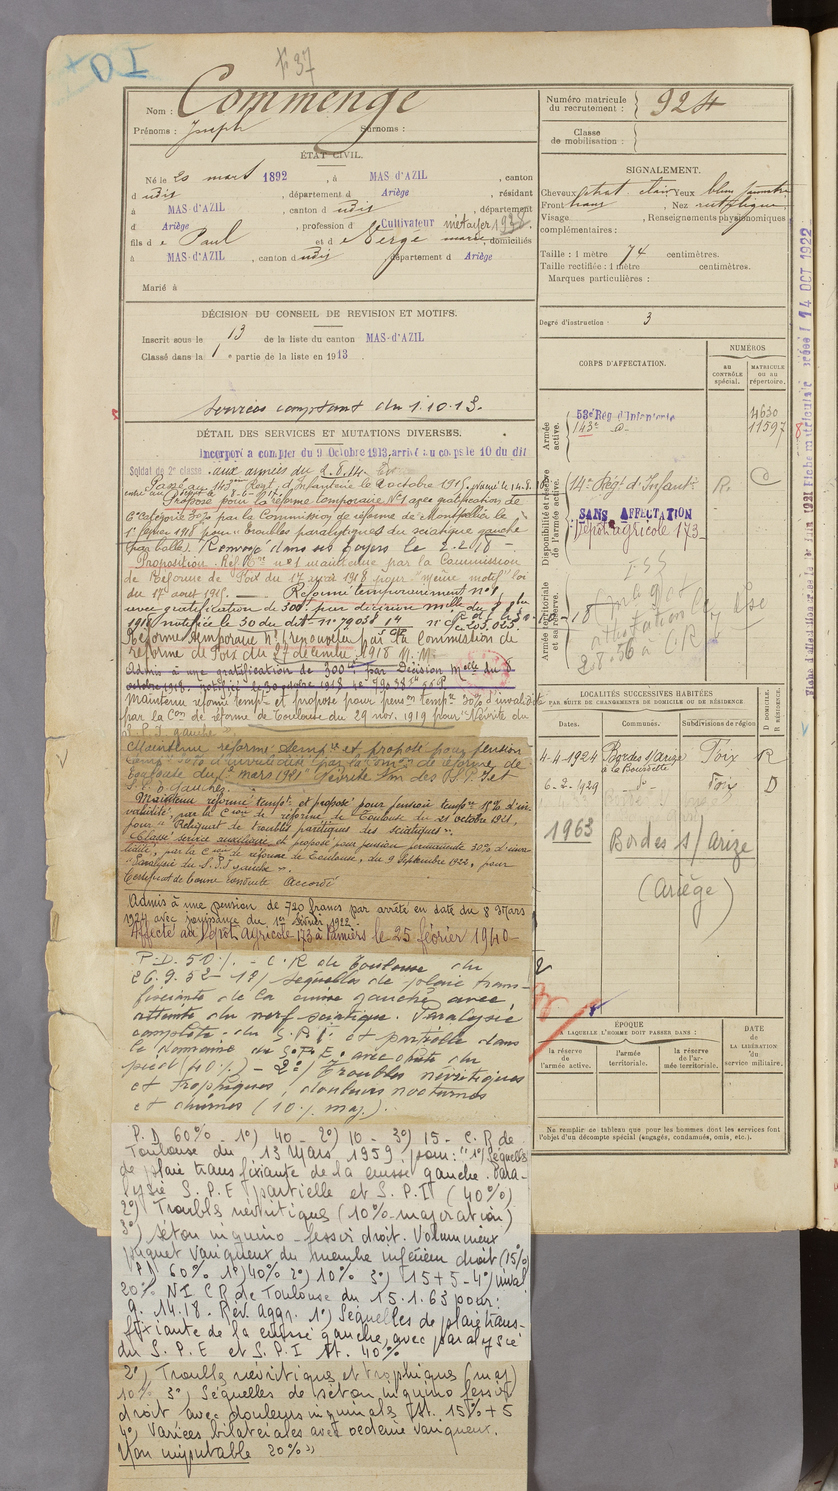 DI
37
Nom : Commenge
Prénoms : Joseph Surnoms :
ÉTAT CIVIL.
Né le 20 mars 1892, à MAS-D'AZIL, canton
d udit, département d Ariège, résidant
à MAS-D'AZIL, canton d udit, département
d Ariège, profession d Cultivateur métayer 1938
fils de Paul et de Merge marie domiciliés
à MAS-D'AZIL, canton dudit département d Ariège
Marié à
DÉCISION DU CONSEIL DE REVISION ET MOTIFS.
Inscrit sous le n° 13 de la liste du canton MAS-d'AZIL
Classé dans la 1e partie de la liste en 1913
Services comptant du 1.10.13.
DÉTAIL DES SERVICES ET MUTATIONS DIVERSES.
Incorporé à compter du 9 Octobre 1913, arrivé au corps le 10 du dit
Soldat de 2e classe. aux armées du 2.8.14.
Passé au 143ème Regt. d'Infanterie le 2 octobre 1915.
Proposé pour la réforme temporaire N°1 avec gratification de
6e catégorie 30% par la Commission de réforme de Montpellier le
1er février 1918 pour "troubles paralytiques du sciatique gauche
(par balle). Renvoyé dans ses foyers le 2.2.18 -
Proposition Réf. Tre n°1 maintenue par la Commission
de Réforme de Foix du 17 mai 1918 pour "même motif" loi
du 17 août 1915. - Réformé temporairement n°1,
avec gratification de 300f par décision mlle du 8 8bre
1918 notifiée le 30 du dit n° 79038
Réforme temporaire N°1 renouvelée par la Commission de
réforme de Foix du 27 décembre 1918 N.M.
Admis à une gratification de 300f par Décision Mlle du 8
octobre 1918. notifiée le 30 octobre 1918 n° 79038
Maintenu réformé tempre et proposé pour penson tempre 30% d'invalidité
par la Con de réforme de Toulouse du 29 nov. 1919 pour "Névrite du
S.P.I gauche".
Maintenu réformé tempre et proposé pour pension
temp 30% d'invalidité par la Con de réforme de
Toulouse du 2 mars 1921 "Névrite des S.P.I et
S.P.E gauches"
Maintenu réformé tempre et proposé pour pension tempre 15% d'in-
validité, par la Con de réforme de Toulouse du 21 octobre 1921,
pour "Reliquat de troubles parétiques des sciatiques".
Classé service auxiliaire et proposé pour pension permanente 30% d'inva-
lidité, par la Con de réforme de Toulouse, du 9 Septembre 1922, pour
"Paralysie du S.P.I gauche".
Certificat de bonne conduite Accordé
Admis à une pension de 720 francs par arrêté en date du 8 Mars
1924 avec jouissance du 1er février 1922
Affecté au Dépôt agricole 173 à Pamiers le 25 février 1940
P.D. 50% - C.R de Toulouse du
26.9.52 - 1°) séquelles de plaie trans-
fixiante de la cuisse gauche avec
atteinte du nerf sciatique. Paralysie
complète du S.P.I. et partielle dans
le domaine du S.P.E. avec chute du
pied (40%) - 2°) Troubles névritiques
et trophiques, douleurs nocturnes
et diurnes (10% maj.).
P.D 60% - 1°) 40 - 2°) 10 - 3°) 15 - C.R de
Toulouse du 13 Mars 1959 pour: "1°) Séquelles
de plaie transfixiante de la cuisse gauche. Para-
lysie S.P.E partielle et S.P.I (40%)
2°) Troubles névritiques (10% majoration)
3°) séton inguino-fessier droit. Volumineux
paquet variqueux du membre inférieur droit (15%)
PD 60% 1°) 40% 2°) 10% 3°) 15+5 - 4°) inval
20% NI CR de Toulouse du 15.1.63 pour:
g. 14.18. Rev. Aggr. 1°) Séquelles de plaie trans-
fixiante de la cuisse gauche, avec paralysie
du S.P.E et S.P.I St. 40%
2°) Troubles névritiques et trophiques (maj)
10% 3°) Séquelles de séton inguino fessier
droit avec douleurs inguinales St. 15% + 5
4°) Varices bilatérales avec oedème variqueux.
Non imputable 20%"
Numéro matricule du recrutement : 924
Classe de mobilisation :
SIGNALEMENT.
Cheveux chat. clair Yeux bleu jaunâtre
Front Nez rectiligne
Visage, Renseignements physionomiques
complémentaires :
Taille : 1 mètre 74 centimètres.
Taille rectifiée : 1 mètre centimètres.
Marques particulières :
Degré d'instruction : 3
CORPS D'AFFECTATION.
NUMÉROS
AU CONTRÔLE spécial.
MATRICULE OU AU répertoire.
Armée active.
53e Rég d'Infanterie 4630
143e do 11597
Disponibilité et réserve de l'armée active.
14e Régt d'Infant. R.
SANS AFFECTATION
Dépôt agricole 173
Armée territoriale et sa réserve.
LOCALITÉS SUCCESSIVES HABITÉES
PAR SUITE DE CHANGEMENTS DE DOMICILE OU DE RÉSIDENCE.
D. DOMICILE. R. RÉSIDENCE.
Dates. Communes. Subdivisions de région
4-4-1924 Bordes s/Arize Foix R
à la Bourdette
6-2-1929 -d°- Foix D
1963 Bordes s/Arize
(Ariège)
ÉPOQUE
A LAQUELLE L'HOMME DOIT PASSER DANS :
la réserve de l'armée active.
l'armée territoriale.
la réserve de l'armée territoriale.
DATE de LA LIBÉRATION du service militaire.
Ne remplir ce tableau que pour les hommes dont les services font
l'objet d'un décompte spécial (engagés, condamnés, omis, etc.).